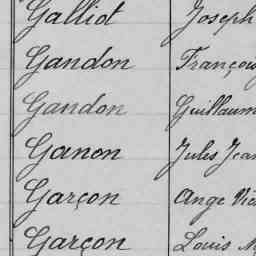 Galliot Joseph
Gandon François
Gandon Guillaum
Ganon Jules Jean
Garçon Ange Vic
Garçon Louis M